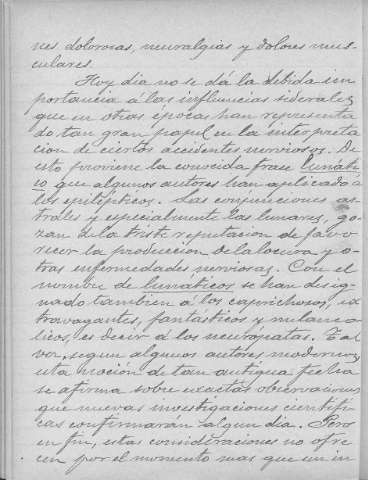 nes dolorosas, neuralgias y dolores mus-
culares.
Hoy dia no se dá la debida im
portancia á las influencias siderales
que en otras épocas han representa
do tan gran papel en la interpreta
cion de ciertos accidentes nerviosos. De
esto proviene la conocida frase lunáti
co que algunos autores han aplicado a
los epilépticos. Las conjunciones as
trales y especialmente las lunares, go-
zan de la triste reputacion de favo
recer la produccion de la locura y o-
tras enfermedades nerviosas. Con el
nombre de lunáticos se han desig
nado tambien á los caprichosos, ex
travagantes, fantásticos y melanco
licos, es decir á los neurópatas. Tal
vez, segun algunos autores modernos,
esta nocion de tan antigua fecha
se afirma sobre exactas observaciones
que nuevas investigaciones cientifi
cas confirmarán algun dia. Pero
en fin, estas consideraciones no ofre
cen por el momento mas que un in